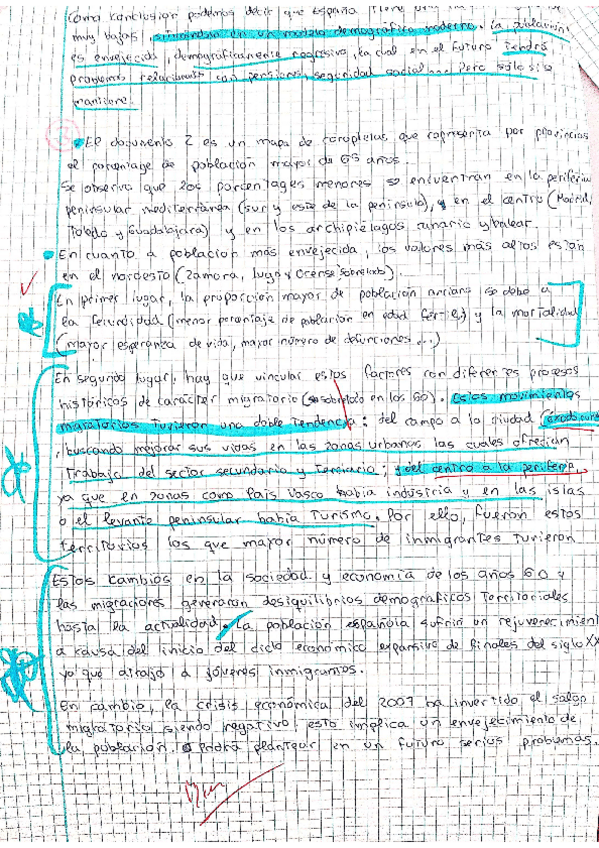 Como conclusión podemos decir que España tiene una
muy bajas, en un modelo demográfico moderno. La población
es envejecida, demográficamente regresiva, la cual en el futuro tendrá
problemas relacionados con pensiones, seguridad social... pero sólo si
mantiene.
El documento 2 es un mapa de coropletas que representa por provincias
el porcentaje de población mayor de 65 años.
Se observa que los porcentajes menores se encuentran en la periferia
peninsular mediterránea (sur y este de la península), y en el centro (Madrid,
Toledo y Guadalajara) y en los archipiélagos canario y balear.
En cuanto a población más envejecida, los valores más altos están
en el noroeste (Zamora, Lugo y Orense sobretodo).
En primer lugar, la proporción mayor de población anciana se debe a
la fecundidad (menor porcentaje de población en edad fértil) y la mortalidad
(mayor esperanza de vida, mayor número de defunciones...)
En segundo lugar, hay que vincular estos factores con diferentes procesos
históricos de carácter migratorio (sobretodo en los 60). Estos movimientos
migratorios tuvieron una doble tendencia: del campo a la ciudad (éxodo rural
buscando mejorar sus vidas en las zonas urbanas las cuales ofrecían
trabajo del sector secundario y terciario; y del centro a la periferia,
ya que en zonas como País Vasco había industria y en las islas
o el levante peninsular había turismo. Por ello, fueron estos
territorios los que mayor número de inmigrantes tuvieron
Estos cambios en la sociedad y economía de los años 60 y
las migraciones generaron desequilibrios demográficos territoriales
hasta la actualidad. La población española sufrió un rejuvenecimient
a causa del inicio del ciclo económico expansivo de finales del siglo XX
ya que atrajo a jóvenes inmigrantes.
En cambio, la crisis económica del 2007 ha invertido el saldo
migratorio siendo negativo, esto implica un envejecimiento de
la población podrá plantear en un futuro serios problemas.